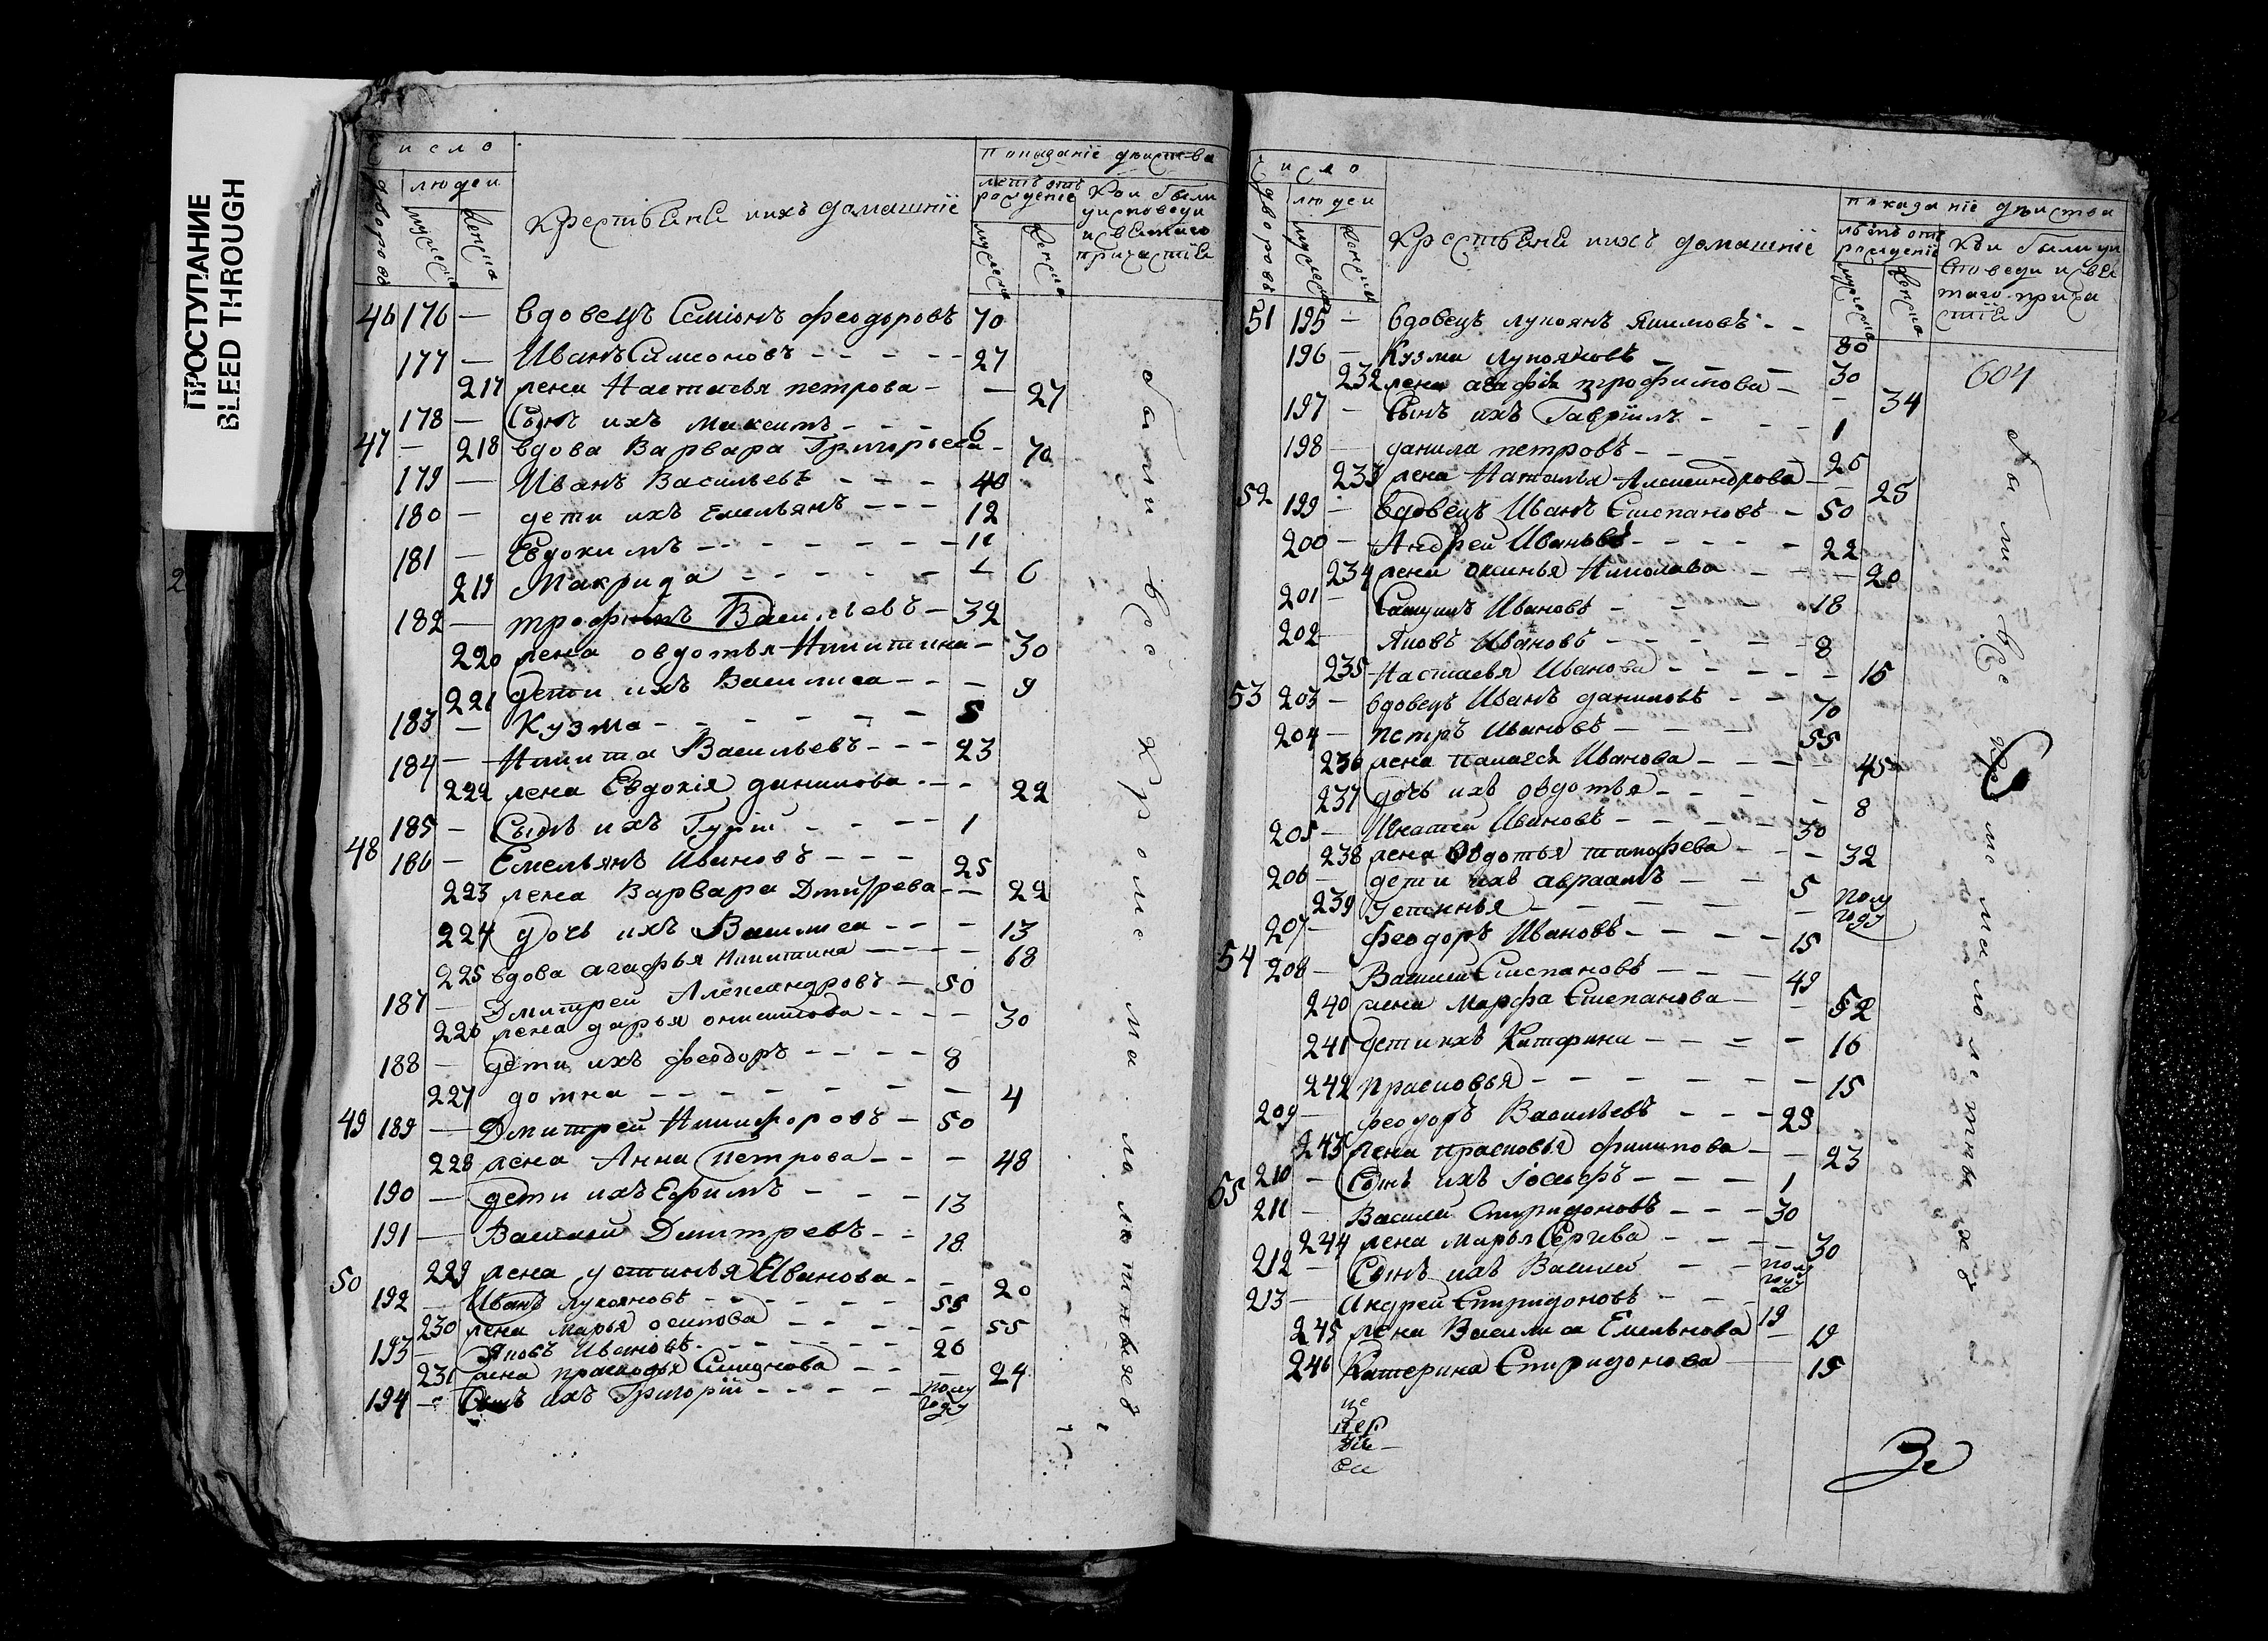 ПРОСТУПАНИЕ
BLEED THROUGH
число
показанїе дѣиства
дворовъ
людеи
мужеска
женска
крестьяня иихъ домашнїе
летъ отъ рожденїе
мужеска
женска
кои были уисповеди исвятаго причастїя
46 176 — вдовецъ Семїонъ феодоровъ 70
177 — Иванъ Симеоновъ - - - - - 27
217 жена Настасья петрова - — 27
178 — Сынъ ихъ Максимъ - - - 6
47 — 218 вдова Варвара Григорьева - 70
179 — Иванъ Васильевъ - - - - 40
180 — дети ихъ Емельянъ - - - 12
181 — Евдокимъ - - - - - - - 11
219 Макрида - - - - - - 6
182 — трофимъ Васильевъ - 32
220 жена овдотья Никитина - 30
221 дети ихъ Василиса - - - 9
183 — Кузма - - - - - - - 5
184 — Никита Васильевъ - - - 23
222 жена Евдокїя данилова - - - 22
185 — Сынъ ихъ Гурїи - - - - 1
48 186 — Емельянъ Ивановъ - - - 25
223 жена Варвара Дмитрева - - 22
224 дочь ихъ Василиса - - - 13
225 вдова агафья Никитина - - - - 68
187 — Дмитреи Александровъ - 50
226 жена дарья - - - - 30
188 — дети ихъ феодоръ - - - - 8
227 домна - - - - - - - 4
49 189 — Дмитреи Никифоровъ - 50
228 жена Анна Петрова - - - 48
190 — дети ихъ Ефимъ - - - - 13
191 — Василеи Дмитревъ - - 18
229 жена устинья Иванова - - 20
50 192 — Иванъ лукояновъ - - - - - - 55
230 жена марья осипова - - - - - 55
193 — Яковъ Ивановъ - - - - - - 26
231 жена прасковья - - - 24
194 — Сынъ ихъ Григорїи - - - - - полу году
были все кроме ма лолѣтныхъ
число
показанїе дѣиства
дворовъ
людеи
мужеска
женска
крестьяня иихъ домашнїе
лѣтъ отъ рожденїе
мужеска
женска
кои были уисповеди исвятаго причастїя
604
51 195 — вдовецъ лукоянъ Якимовъ - - 80
196 — Кузма лукояновъ - - - 30
232 жена агафїя трофимова - - 34
197 — Сынъ ихъ Гаврїилъ - - - 1
198 — данила петровъ - - - - 26
233 жена Наталья Александрова - 25
52 199 — вдовецъ Иванъ Степановъ - 50
200 — Андреи Ивановъ - - - - - 22
234 жена аксинья Николава - - - 20
201 — Ивановъ - - - 18
202 — Яковъ Ивановъ - - - - - 8
235 Настасья Иванова - - - - - 15
53 203 — вдовецъ Иванъ даниловъ - - 70
204 — петръ Ивановъ - - - - 55
236 жена палагея Иванова - - - - 45
237 дочь ихъ овдотья - - - - 8
205 — Игнатеи Ивановъ - - - - 30
238 жена овдотья тимофева - - - 32
206 — дети ихъ авраамъ - - - 5
239 устинья - - - - - - полу году
207 — феодоръ Ивановъ - - - - 15
54 208 — Василеи Степановъ - - - 49
240 жена Марфа Степанова - - 52
241 дети ихъ Катерина - - - - 16
242 прасковья - - - - - - - 15
209 — феодоръ Васильевъ - - - 23
243 жена прасковья филипова - - 23
210 — Сынъ ихъ їосифъ - - - - 1
55 211 — Василеи Спиридоновъ - - - 30
244 жена Марья Сергева - - - - 30
212 — Сынъ ихъ Василеи - - полу году
213 — Андреи Спиридоновъ - - - 19
245 жена Василиса Емельнова — 19
246 Катерина Спиридонова — 15
были все кроме малолетныхъ